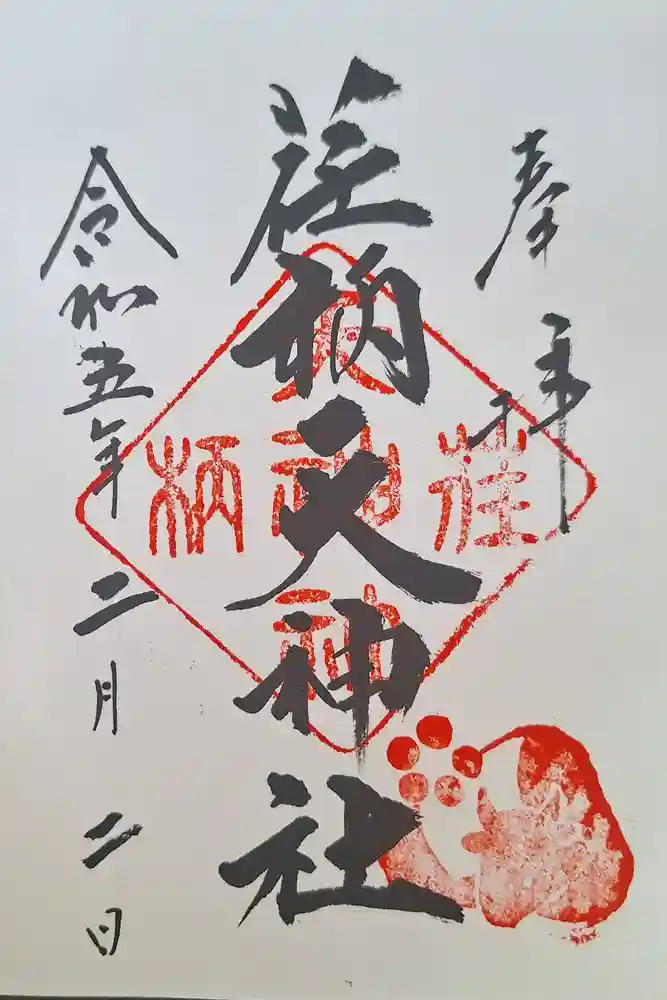 奉拝
荏柄天神社
令和五年二月二日
荏
柄
天
神